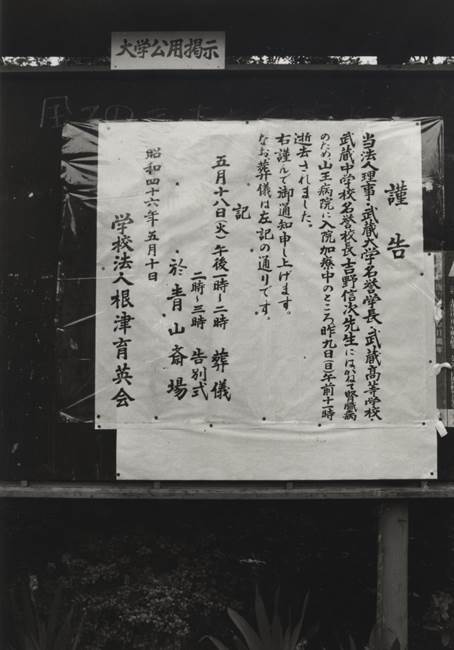 大学公用掲示
謹告
当法人理事・武蔵大学名誉学長・武蔵高等学校・
武蔵中学校名誉校長吉野信次先生にはかねて腎臓病
のため山王病院に入院加療中のところ昨九日(日)午前十一時
逝去されました。
右謹んで御通知申し上げます。
なお葬儀は左記の通りです。
記
五月十八日(火)午後一時〜二時 葬儀
二時〜三時 告別式
於青山斎場
昭和四十六年五月十日
学校法人根津育英会